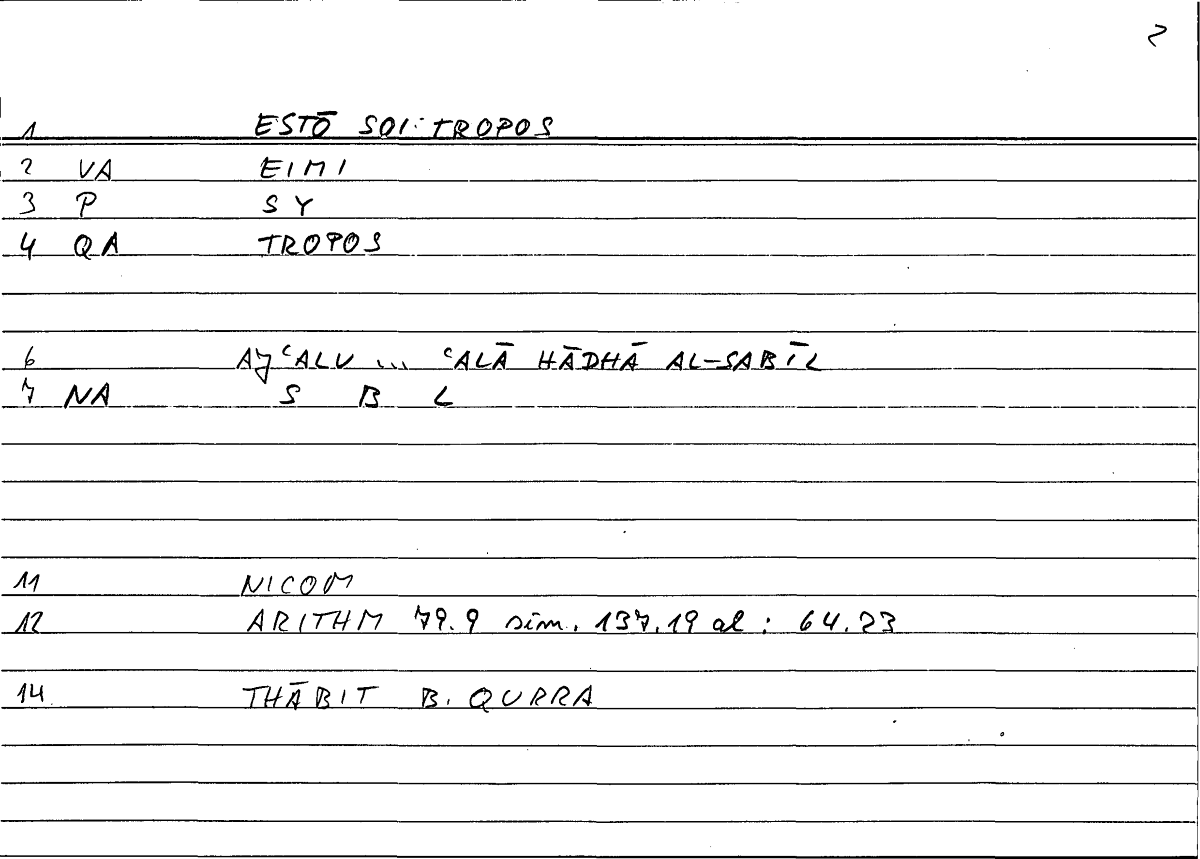 2
1 ESTŌ SOI: TROPOS
2 VA EIMI
3 P SY
4 QA TROPOS
6 AJʿALU ... ʿALĀ HĀDHĀ AL-SABĪL
7 NA S B L
11 NICOM
12 ARITHM 79.9 sim. 137.19 al : 64.23
14 THĀBIT B. QURRA